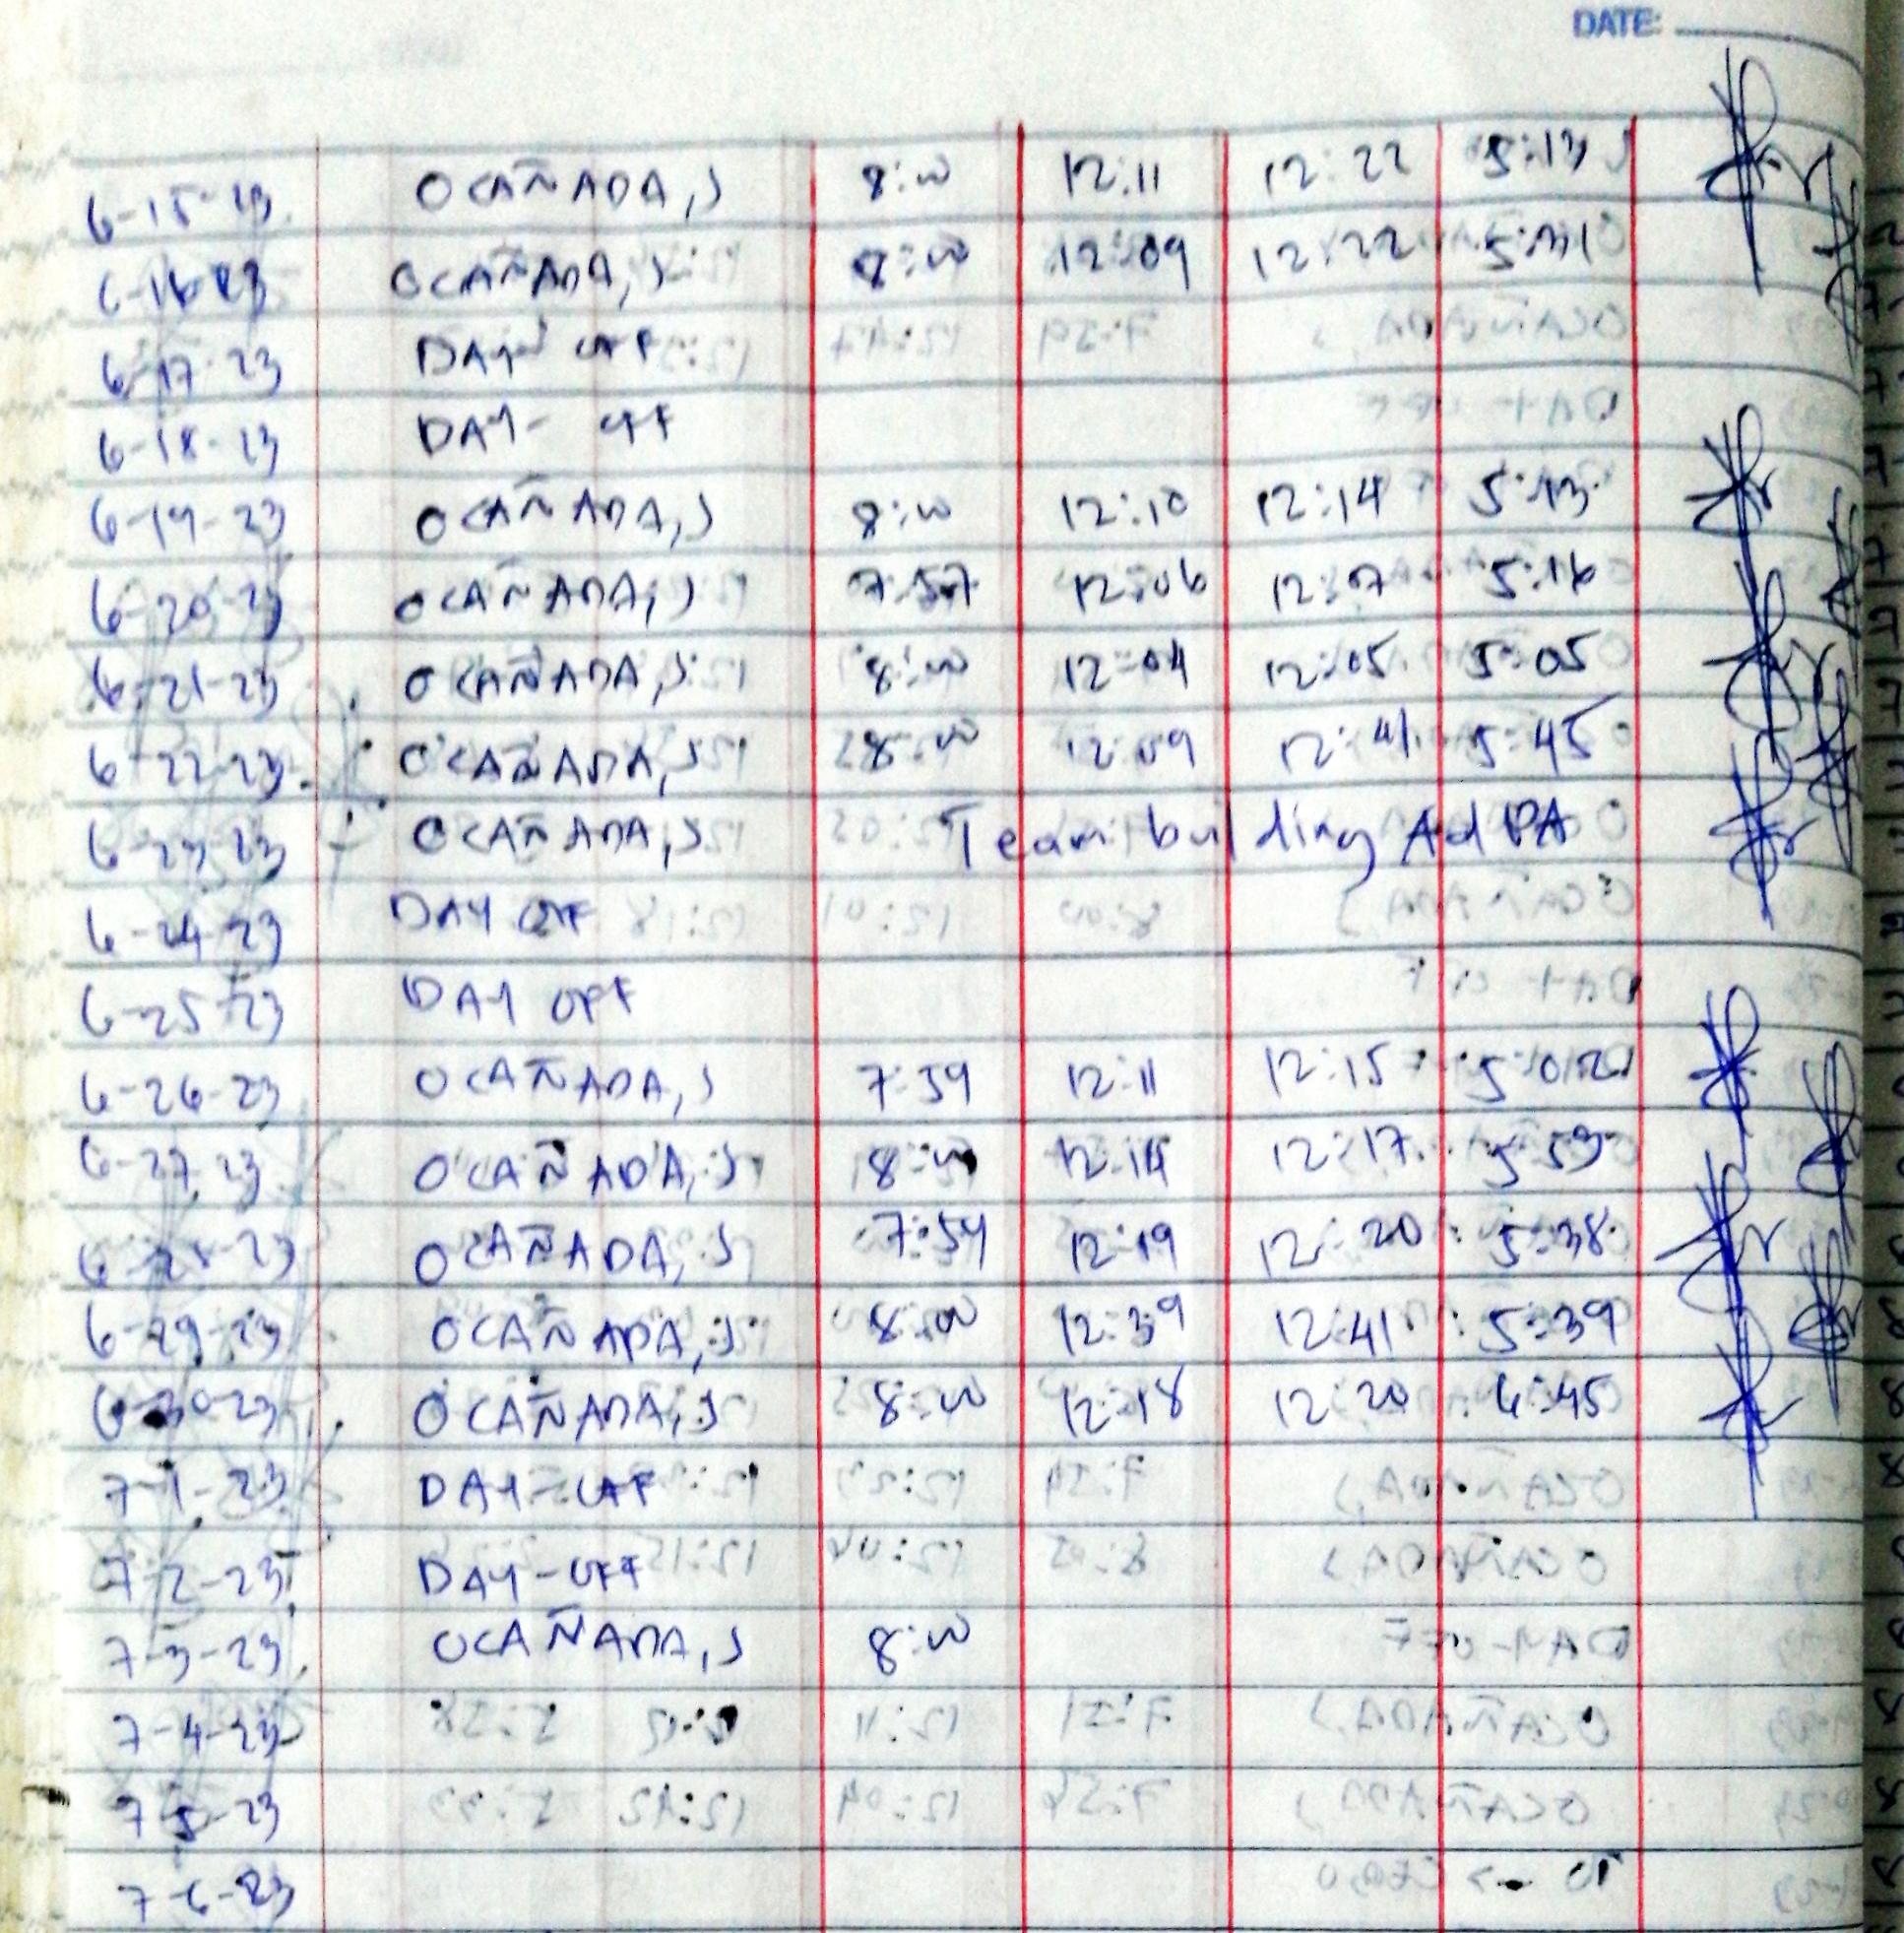 DATE:
6-15-23 OCAÑADA, J 8:00 12:11 12:22 5:13
6-16-23 OCAÑADA, J 8:00 12:09 12:22 5:31
6-17-23 DAY OFF
6-18-23 DAY-OFF
6-19-23 OCAÑADA, J 8:00 12:10 12:14 5:13
6-20-23 OCAÑADA, J 7:57 12:06 12:07 5:16
6-21-23 OCAÑADA, J 8:00 12:04 12:05 5:05
6-22-23 OCAÑADA, J 8:00 12:09 12:41 5:45
6-23-23 OCAÑADA, J Team building AdPA
6-24-23 DAY OFF
6-25-23 DAY OFF
6-26-23 OCAÑADA, J 7:59 12:11 12:15 5:02
6-27-23 OCAÑADA, J 8:00 12:14 12:17 5:59
6-28-23 OCAÑADA, J 7:59 12:19 12:20 5:38
6-29-23 OCAÑADA, J 8:00 12:39 12:41 5:39
6-30-23 OCAÑADA, J 8:00 12:18 12:20 6:45
7-1-23 DAY-OFF
7-2-23 DAY-OFF
7-3-23 OCAÑADA, J 8:00
7-4-23
7-5-23
7-6-23